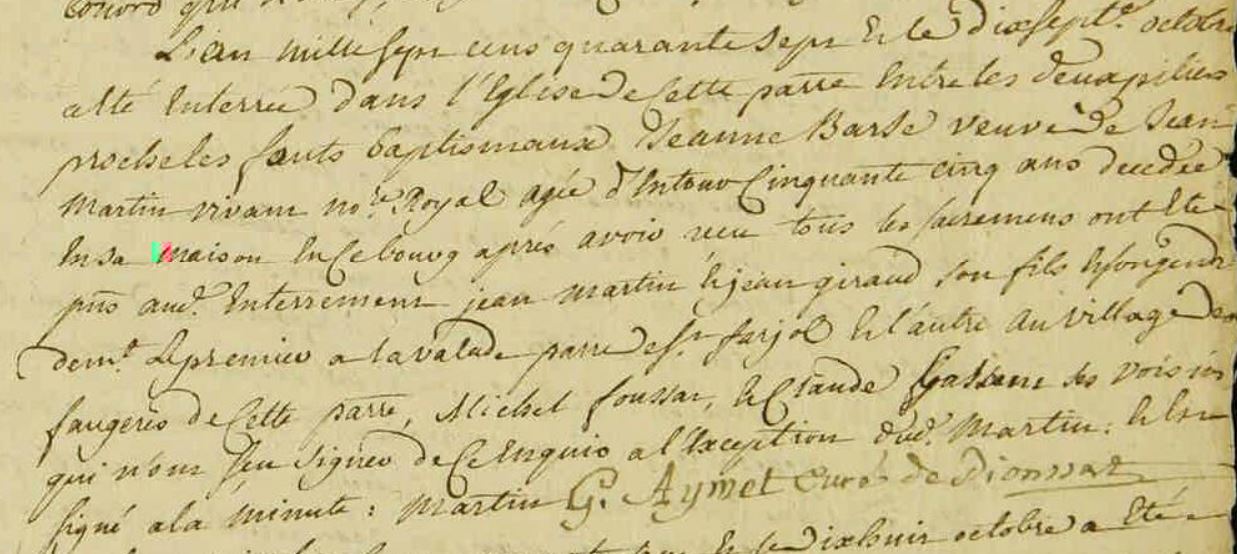 L'an mille sept cens quarante sept & le dixsept.e octobre
a eté Enterrée dans l'Eglise de Cette parre Entre les deux piliers
proche les fonts baptismaux Jeanne Barse veuve de Jean
Martin vivant no.re Royal agée d'Entour Cinquante cinq ans decedée
En sa maison En Ce bourg aprés avoir receu tous les sacremens ont Eté
pnts aud. Enterrement jean martin & jean giraud son fils & son gendre
dem.t Le premier a la valade parre de St farjol & l'autre Au village de
faugeres de Cette parre, Michel foussat, & Claude ses voisins
qui n'ont sçeu signer de Ce Enquis a l'Exception dud. Martin:
signé a la minute: Martin G. Aymet Curé de Dionssac
dixhuit octobre a Eté